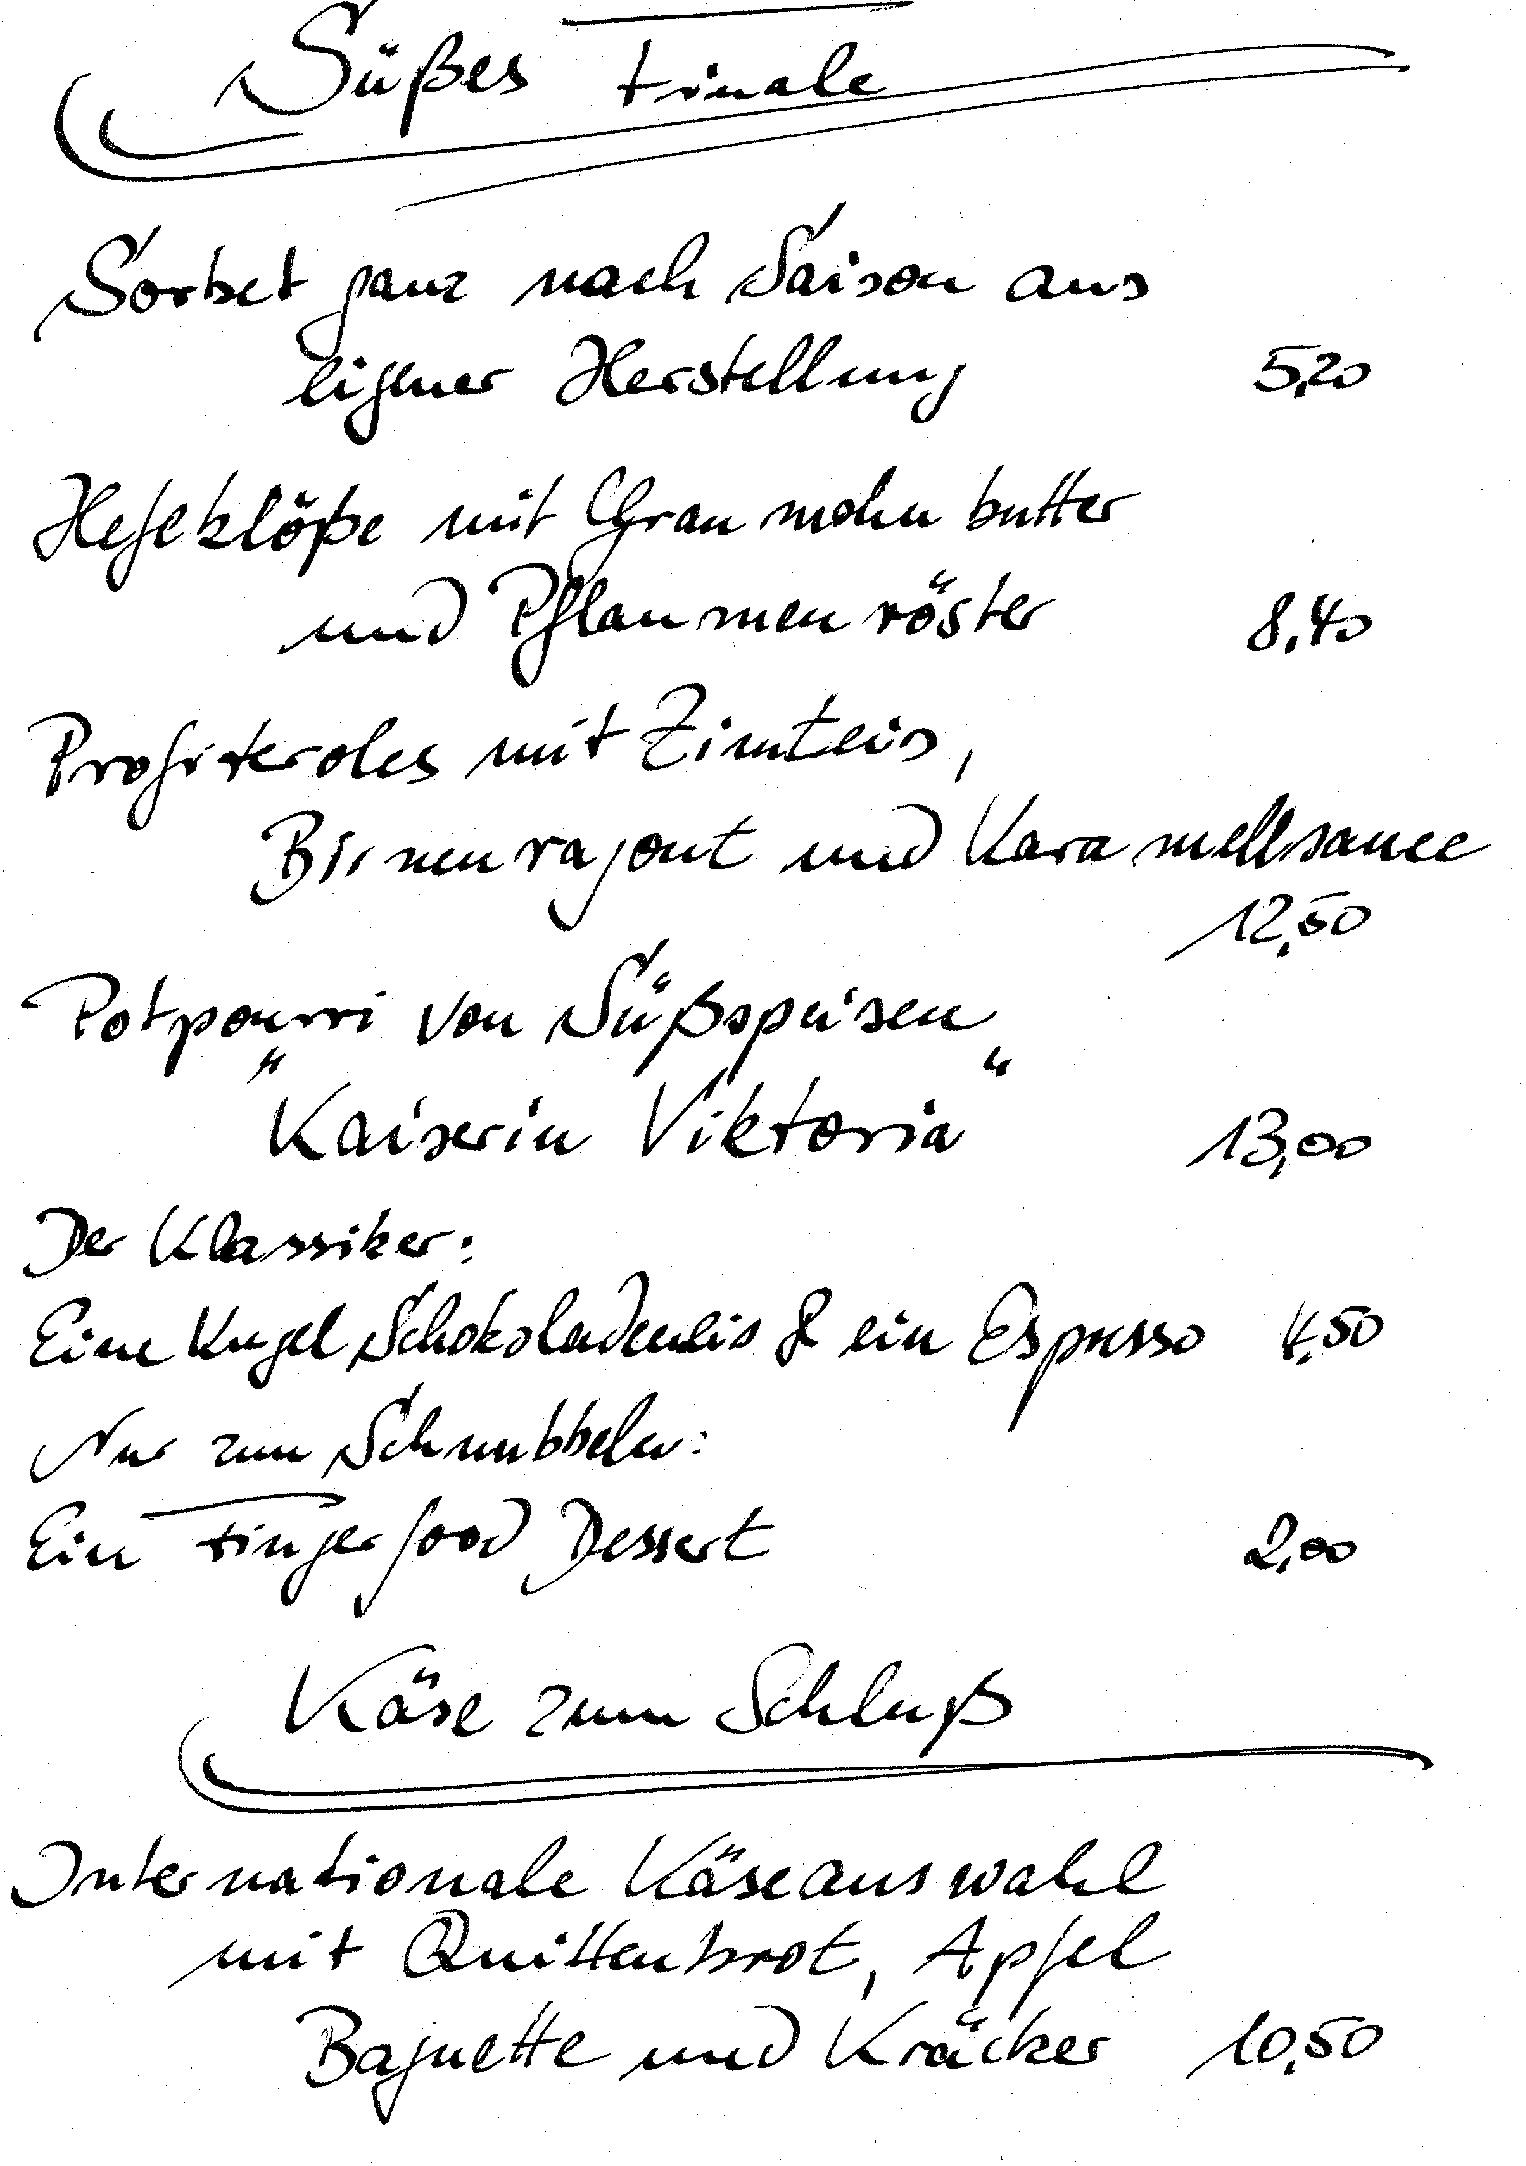 Süßes Finale
Sorbet ganz nach Saison aus
eigener Herstellung 5,20
Hefeklöße mit Graumohnbutter
und Pflaumenröster 8,40
Profiteroles mit Zimteis,
Birnenragout und Karamellsauce
12,50
Potpourri von Süßspeisen
"Kaiserin Viktoria" 13,00
Der Klassiker:
Eine Kugel Schokoladeneis & ein Espresso 4,50
Nur zum Schnubbeln:
Ein Fingerfood Dessert 2,00
Käse zum Schluß
Internationale Käseauswahl
mit Quittenbrot, Apfel
Baguette und Kräcker 10,50